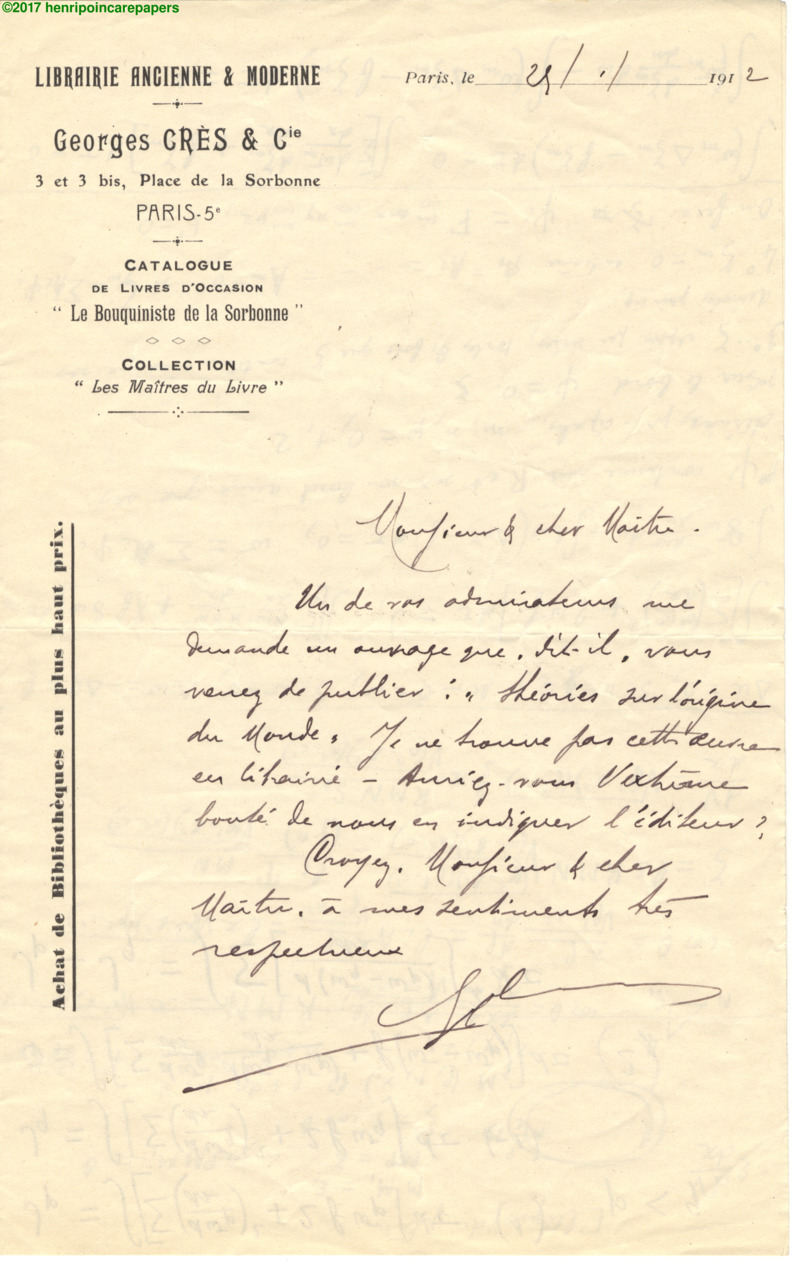 ©2017 henripoincarepapers
LIBRAIRIE ANCIENNE & MODERNE
Georges CRÈS & Cie
3 et 3 bis, Place de la Sorbonne
PARIS-5e
CATALOGUE
DE LIVRES D'OCCASION
" Le Bouquiniste de la Sorbonne "
COLLECTION
" Les Maîtres du Livre "
Achat de Bibliothèques au plus haut prix.
Paris, le 29/1/1912
Monsieur & cher Maître.
Un de vos admirateurs me
demande un ouvrage que, dit-il, vous
venez de publier : " théories sur l'origine
du Monde " Je ne trouve pas cette œuvre
en librairie – Auriez-vous l'extrême
bonté de nous en indiquer l'éditeur ?
Croyez, Monsieur & cher
Maître, à mes sentiments très
respectueux